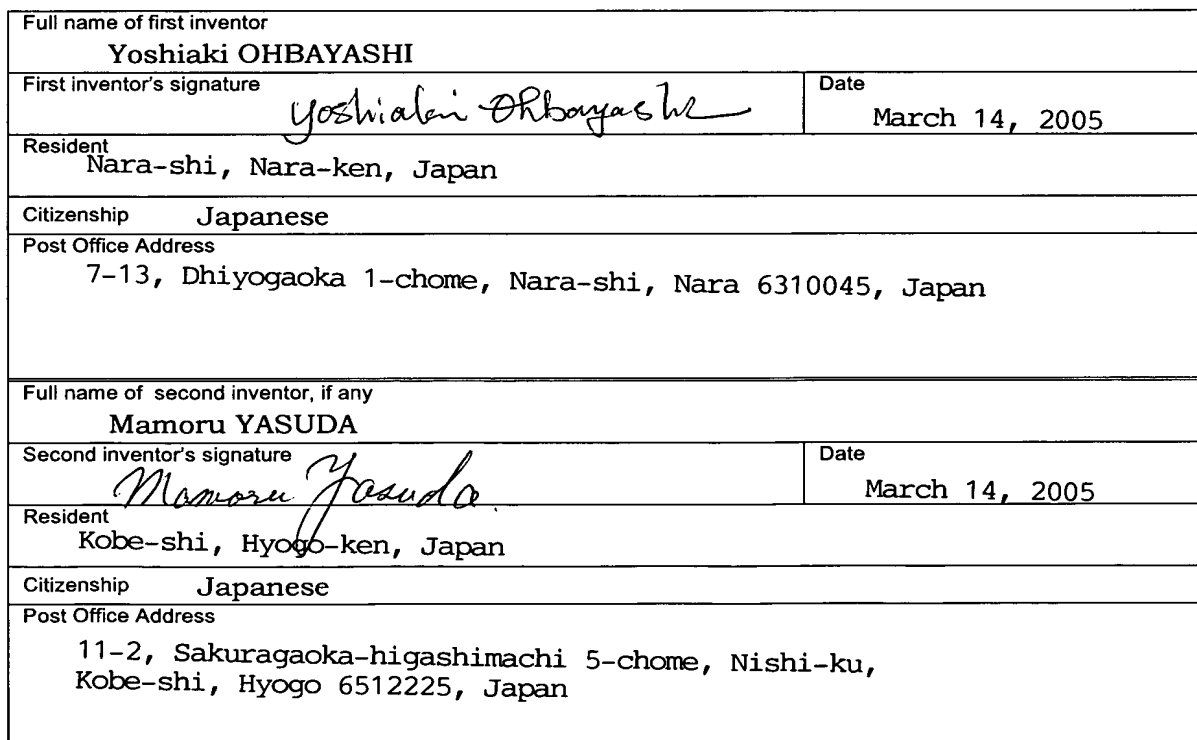 Full name of first inventor
Yoshiaki OHBAYASHI
First inventor's signature
Yoshiaki Ohbayashi
Date
March 14, 2005
Resident
Nara-shi, Nara-ken, Japan
Citizenship Japanese
Post Office Address
7-13, Dhiyogaoka 1-chome, Nara-shi, Nara 6310045, Japan
Full name of second inventor, if any
Mamoru YASUDA
Second inventor's signature
Mamoru Yasuda
Date
March 14, 2005
Resident
Kobe-shi, Hyogo-ken, Japan
Citizenship Japanese
Post Office Address
11-2, Sakuragaoka-higashimachi 5-chome, Nishi-ku,
Kobe-shi, Hyogo 6512225, Japan